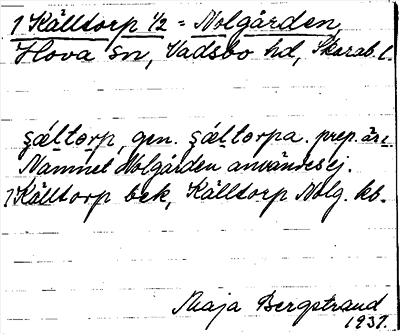 1 Källtorp 1/2 = Nolgården,
Hova sn, Vadsbo hd, Skarab. l.
şæltorp, gen. şæltorpa. prep. är i.
Namnet Nolgården användes ej.
1 Källtorp bek, Källtorp Nolg. kb.
Maja Bergstrand
1937.